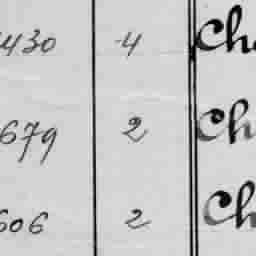 430 4 Ch
679 2 Ch
606 2 Ch